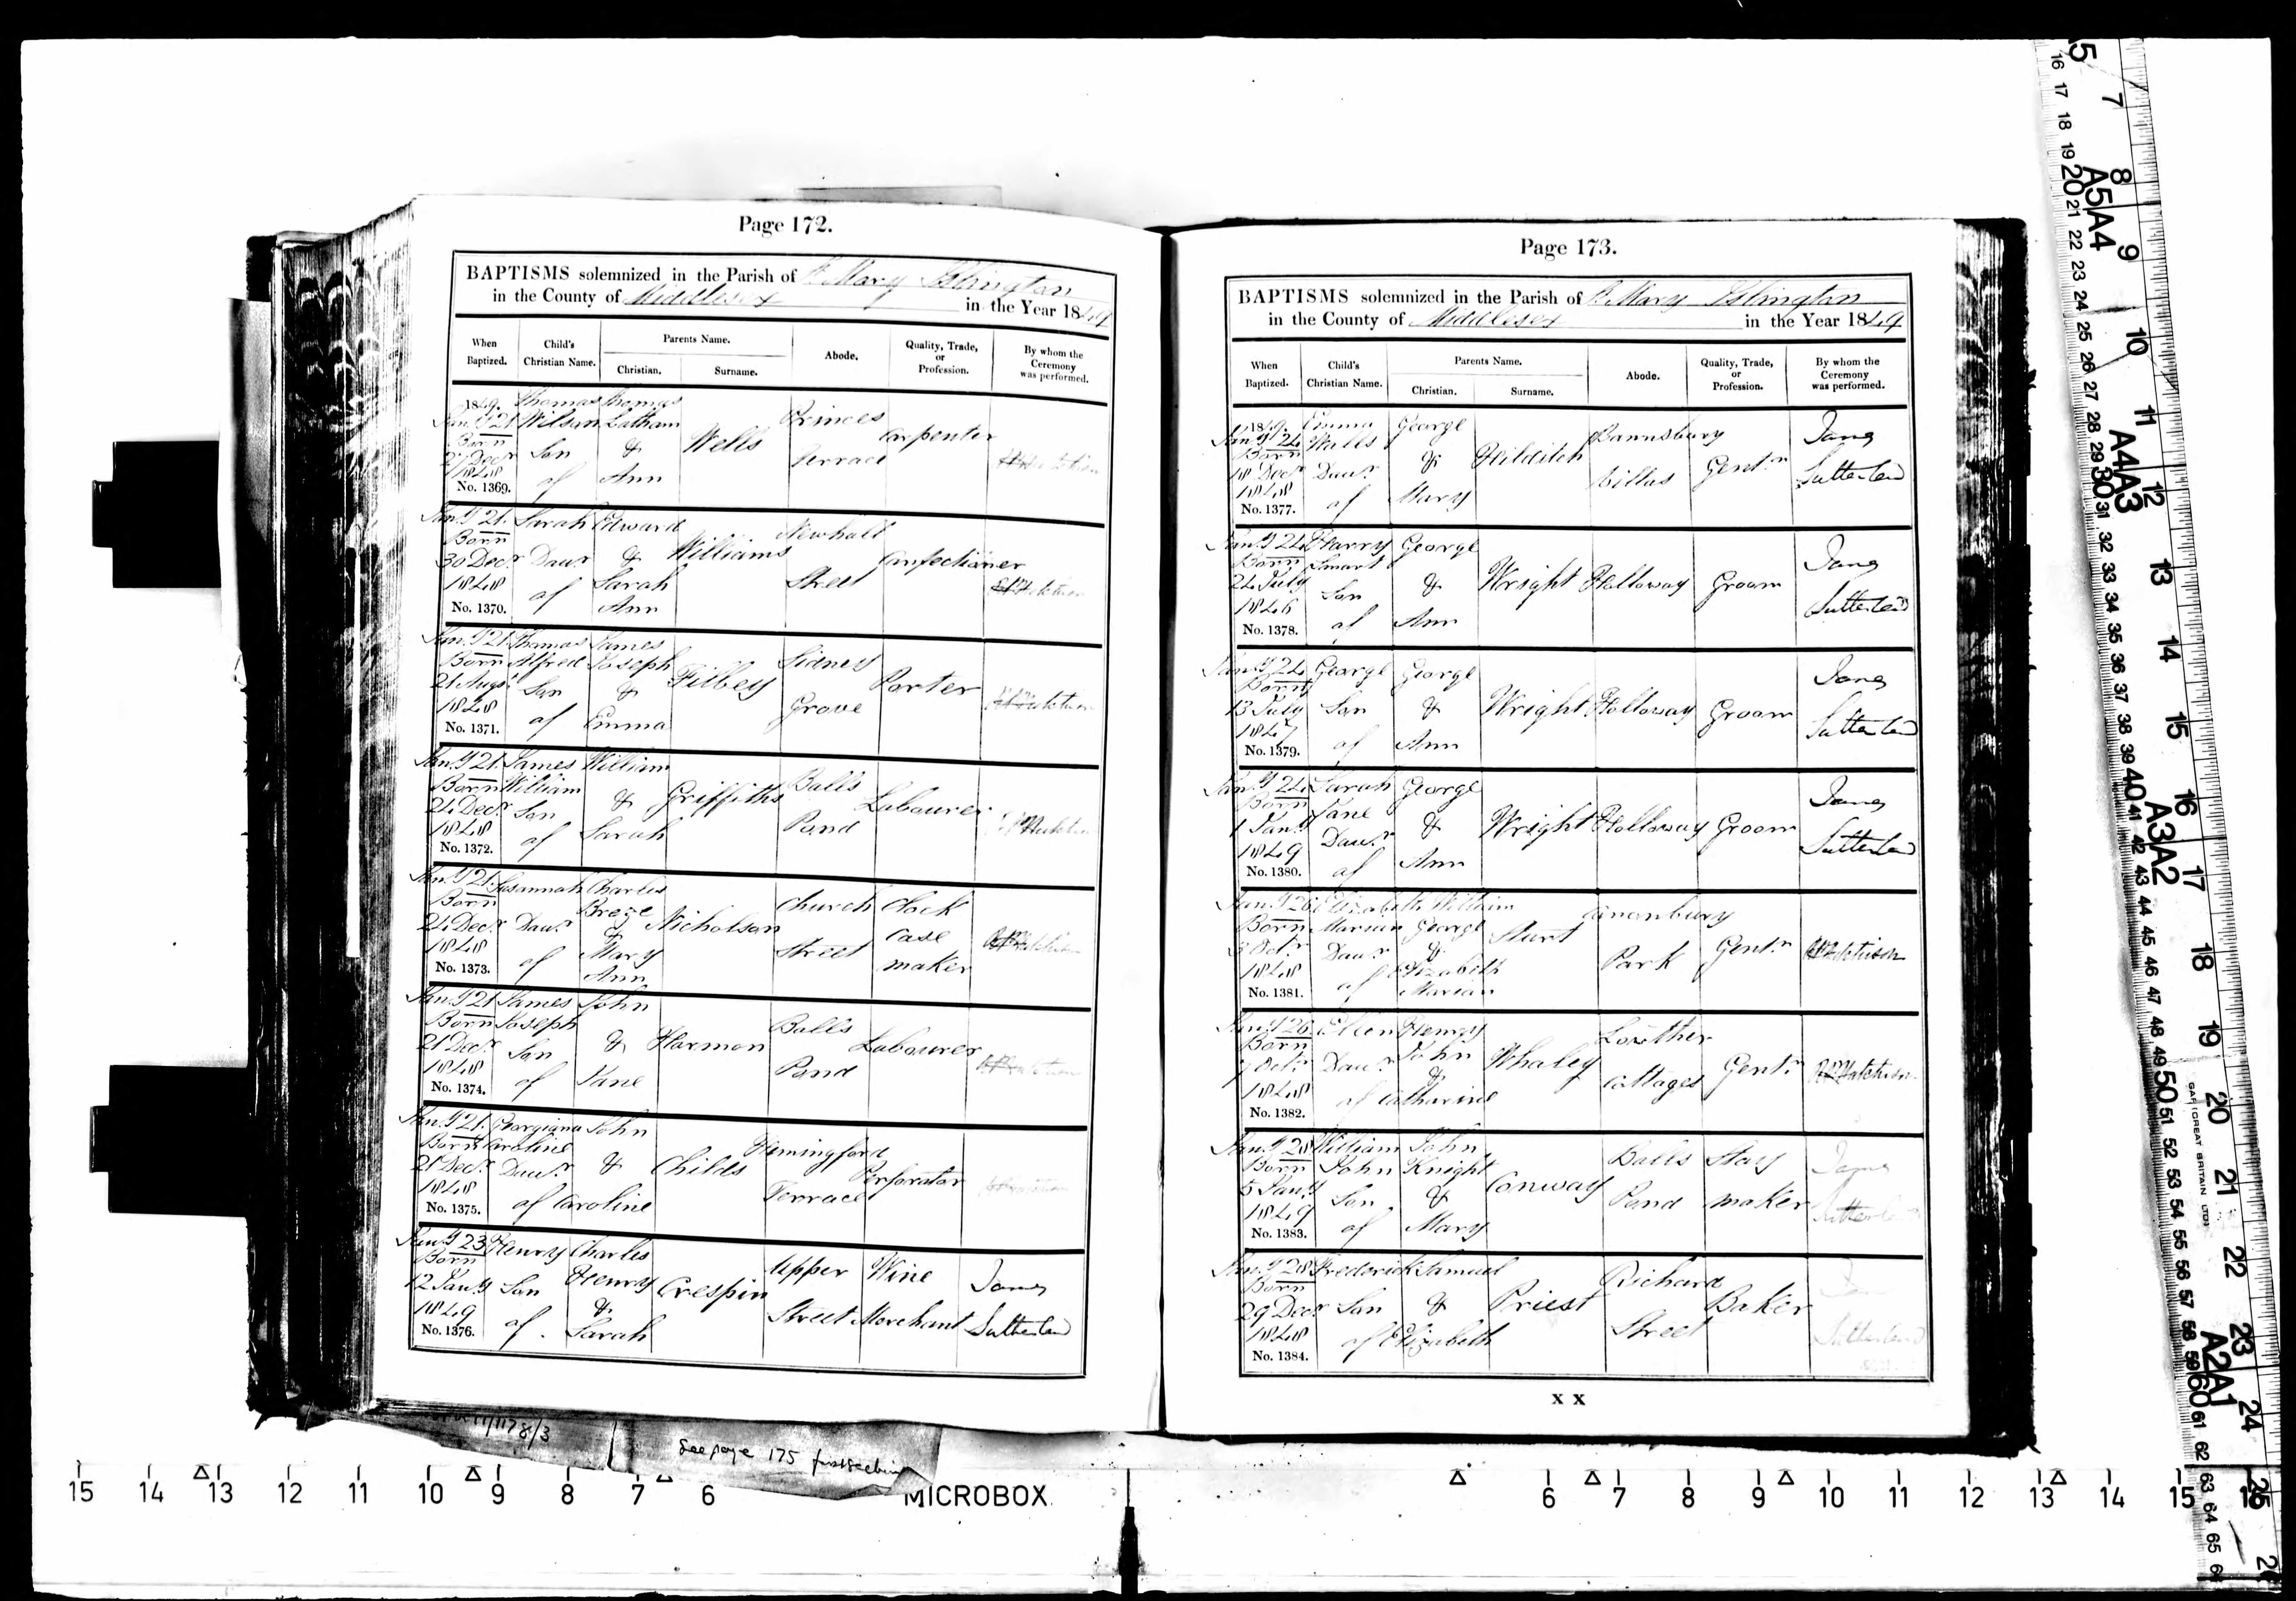 Page 172.
BAPTISMS solemnized in the Parish of St Mary Islington
in the County of Middlesex in the Year 1849
When Baptized.
Child's Christian Name.
Parents Name.
Christian.
Surname.
Abode.
Quality, Trade, or Profession.
By whom the Ceremony was performed.
1849. Jany 21 Born 27 Decr 1848 No. 1369.
Thomas Wilson Son of
Thomas Latham & Ann
Wells
Princes Terrace
Carpenter
Jany 21. Born 30 Decr 1848 No. 1370.
Sarah Daur of
Edward & Sarah Ann
Williams
Newhall Street
Confectioner
Jany 21. Born 21 Augst 1848 No. 1371.
Thomas Alfred Son of
James Joseph & Emma
Filbey
Sidney Grove
Porter
Jany 21. Born 24 Decr 1848 No. 1372.
James William Son of
William & Sarah
Griffiths
Balls Pond
Labourer
Jany 21. Born 24 Decr 1848 No. 1373.
Susannah Daur of
Charles & Mary Ann
Nicholson
Church Street
Clock case maker
Jany 21 Born 21 Decr 1848 No. 1374.
James Joseph Son of
John & Jane
Harmon
Balls Pond
Labourer
Jany 21. Born 21 Decr 1848 No. 1375.
Georgiana Caroline Daur of
John & Caroline
Childs
Hemingford Terrace
Perforator
Jany 23 Born 12 Jany 1849 No. 1376.
Henry Son of
Charles Henry & Sarah
Crespin
Upper Street
Wine Merchant
Page 173.
BAPTISMS solemnized in the Parish of St Mary Islington
in the County of Middlesex in the Year 1849
When Baptized.
Child's Christian Name.
Parents Name.
Christian.
Surname.
Abode.
Quality, Trade, or Profession.
By whom the Ceremony was performed.
1849. Jany 24 Born 18 Decr 1848 No. 1377.
Emma Wills Daur of
George & Mary
Hilditch
Barnsbury Villas
Gentn
Jany 24 Born 24 July 1846 No. 1378.
Harry Smart Son of
George & Ann
Wright
Holloway
Groom
Jany 24 Born 13 July 1847 No. 1379.
George Son of
George & Ann
Wright
Holloway
Groom
Jany 24 Born 1 Jany 1849 No. 1380.
Sarah Jane Daur of
George & Ann
Wright
Holloway
Groom
Jany 26 Born 8 Octr 1848 No. 1381.
Elizabeth Marian Daur of
William George & Elizabeth Marian
Sturt
Canonbury Park
Gentn
Jany 26 Born 7 Octr 1848 No. 1382.
Ellen Daur of
Henry John & Catharine
Whaley
Lowther Cottages
Gentn
Jany 28 Born 5 Jany 1849 No. 1383.
William John Son of
John Knight & Mary
Conway
Balls Pond
Stay maker
Jany 28 Born 29 Decr 1848 No. 1384.
Frederick Son of
Samuel & Elizabeth
Priest
Richard Street
Baker
X X
See page 175
MICROBOX
15 14 13 12 11 10 9 8 7 6
6 7 8 9 10 11 12 13 14 15
A5 A4 A3 A2 A1